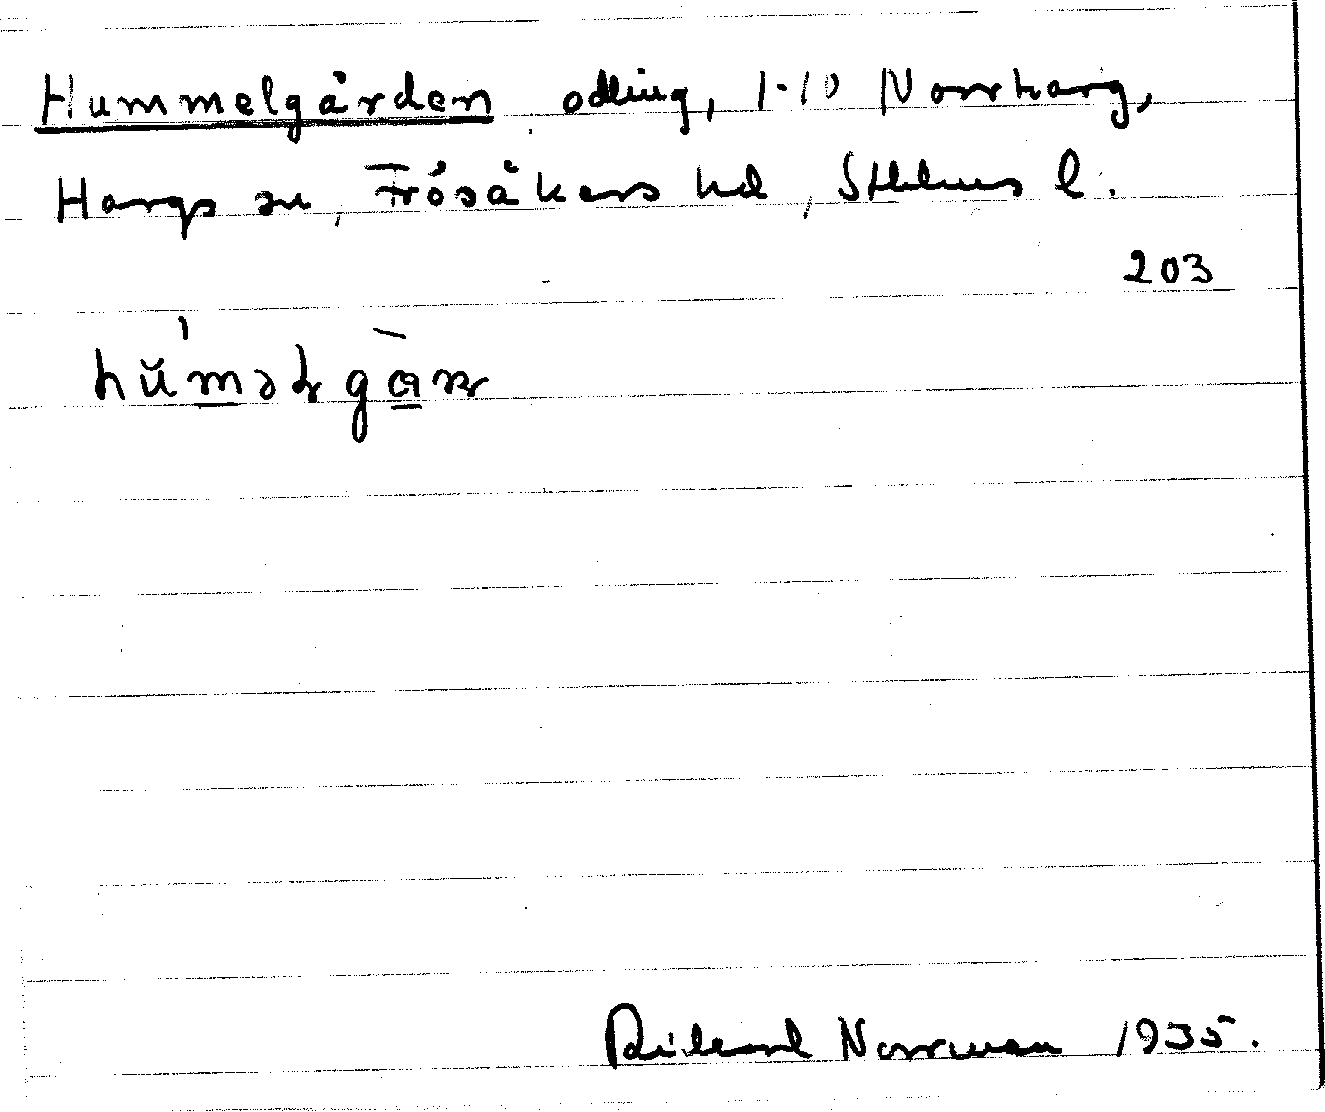 Hummelgården odling, 1-10 Norrharg,
Hargs sn, Frösåkers hd, Sthlms l.
203
Rickard Norrman 1935.